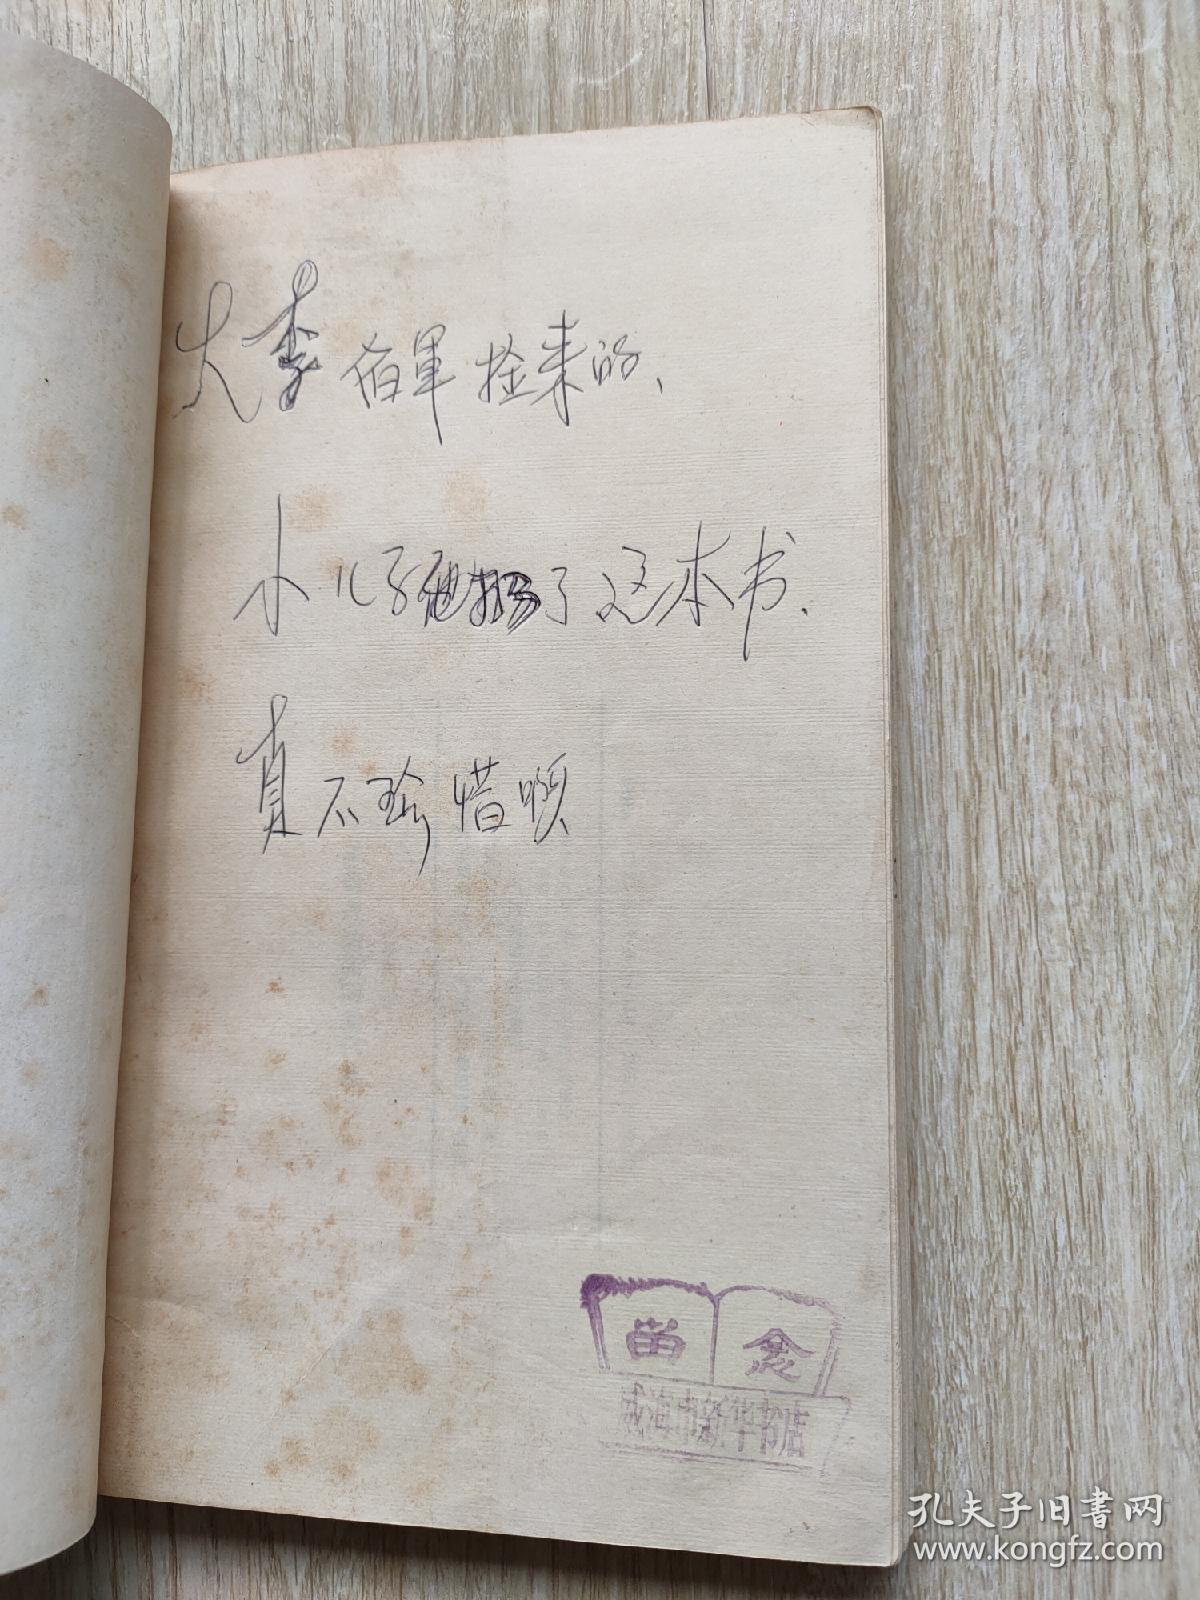 大李 军捡来的、
小儿子他扔了这本书、
真不珍惜呗
留念
威海市新华书店
孔夫子旧书网
www.kongfz.com